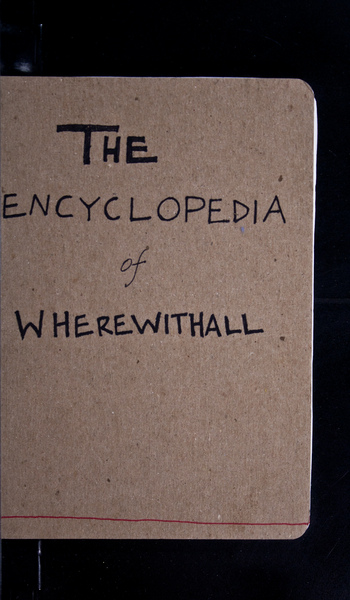 THE
ENCYCLOPEDIA
of
WHEREWITHALL